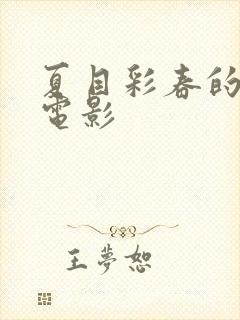 夏目彩春的
電影
王夢恕